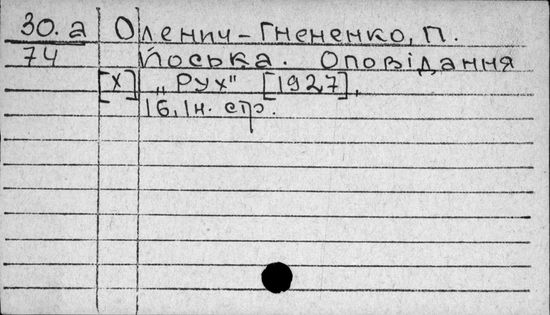 30.а Оленич-Гнененко, П.
74 Йоська. Оповідання
[Х] „Рух" [1927],
16, Ін. стр.